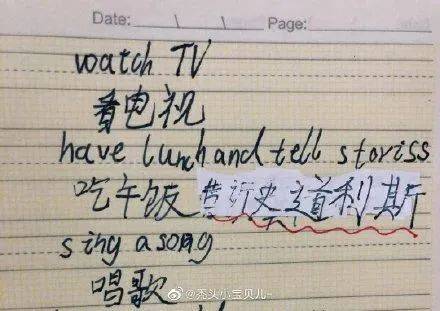 Date: Page:
watch TV
看电视
have lunch and tell storiss
吃午饭 共沂史道利其斤
sing a song
唱歌
@秃头小宝贝儿-